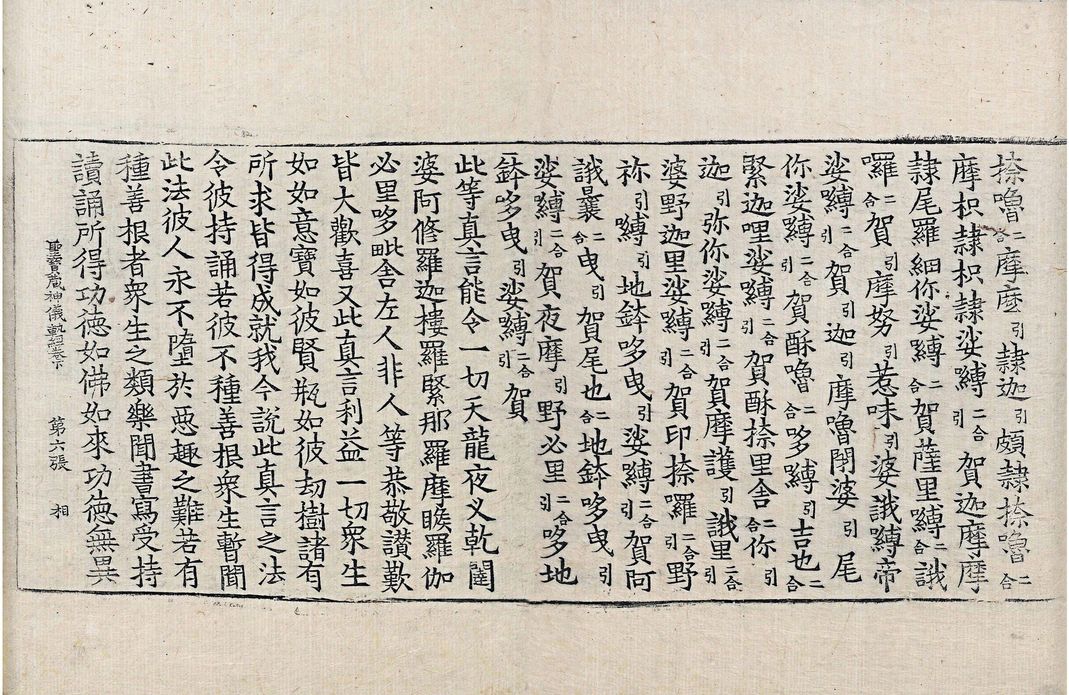 捺嚕二合摩摩引隷迦引頗隷捺嚕二合
摩枳隷枳隷娑縛二合引賀迦摩摩
隷尾羅細你娑縛二合賀薩里縛二合誐
羅二合賀引摩努引惹味引婆誐縛帝
娑縛二合引賀引迦引摩嚕閉婆引尾
你娑縛二合引賀酥嚕二合哆縛引吉也二合
緊迦哩娑縛二合引賀酥捺里舍二合你引
迦引弥你娑縛二合引賀摩護引誐里二合引
婆野迦里娑縛二合引賀印捺囉二合野
祢引縛引地鉢哆曳引娑縛二合引賀阿
誐曩二合曳引賀尾也二合地鉢哆曳引
娑縛二合引賀夜摩引野必里二合引哆地
鉢哆曳引娑縛二合引賀
此等真言能令一切天龍夜叉乾闥
婆阿修羅迦樓羅緊那羅摩睺羅伽
必里哆毗舍左人非人等恭敬讚歎
皆大歡喜又此真言利益一切衆生
如如意寶如彼賢瓶如彼劫樹諸有
所求皆得成就我今說此真言之法
令彼持誦若彼不種善根衆生暫聞
此法彼人永不墮於惡趣之難若有
種善根者衆生之類樂聞書寫受持
讀誦所得功德如佛如來功德無異
聖寶藏神儀軌經卷下 第六張 相